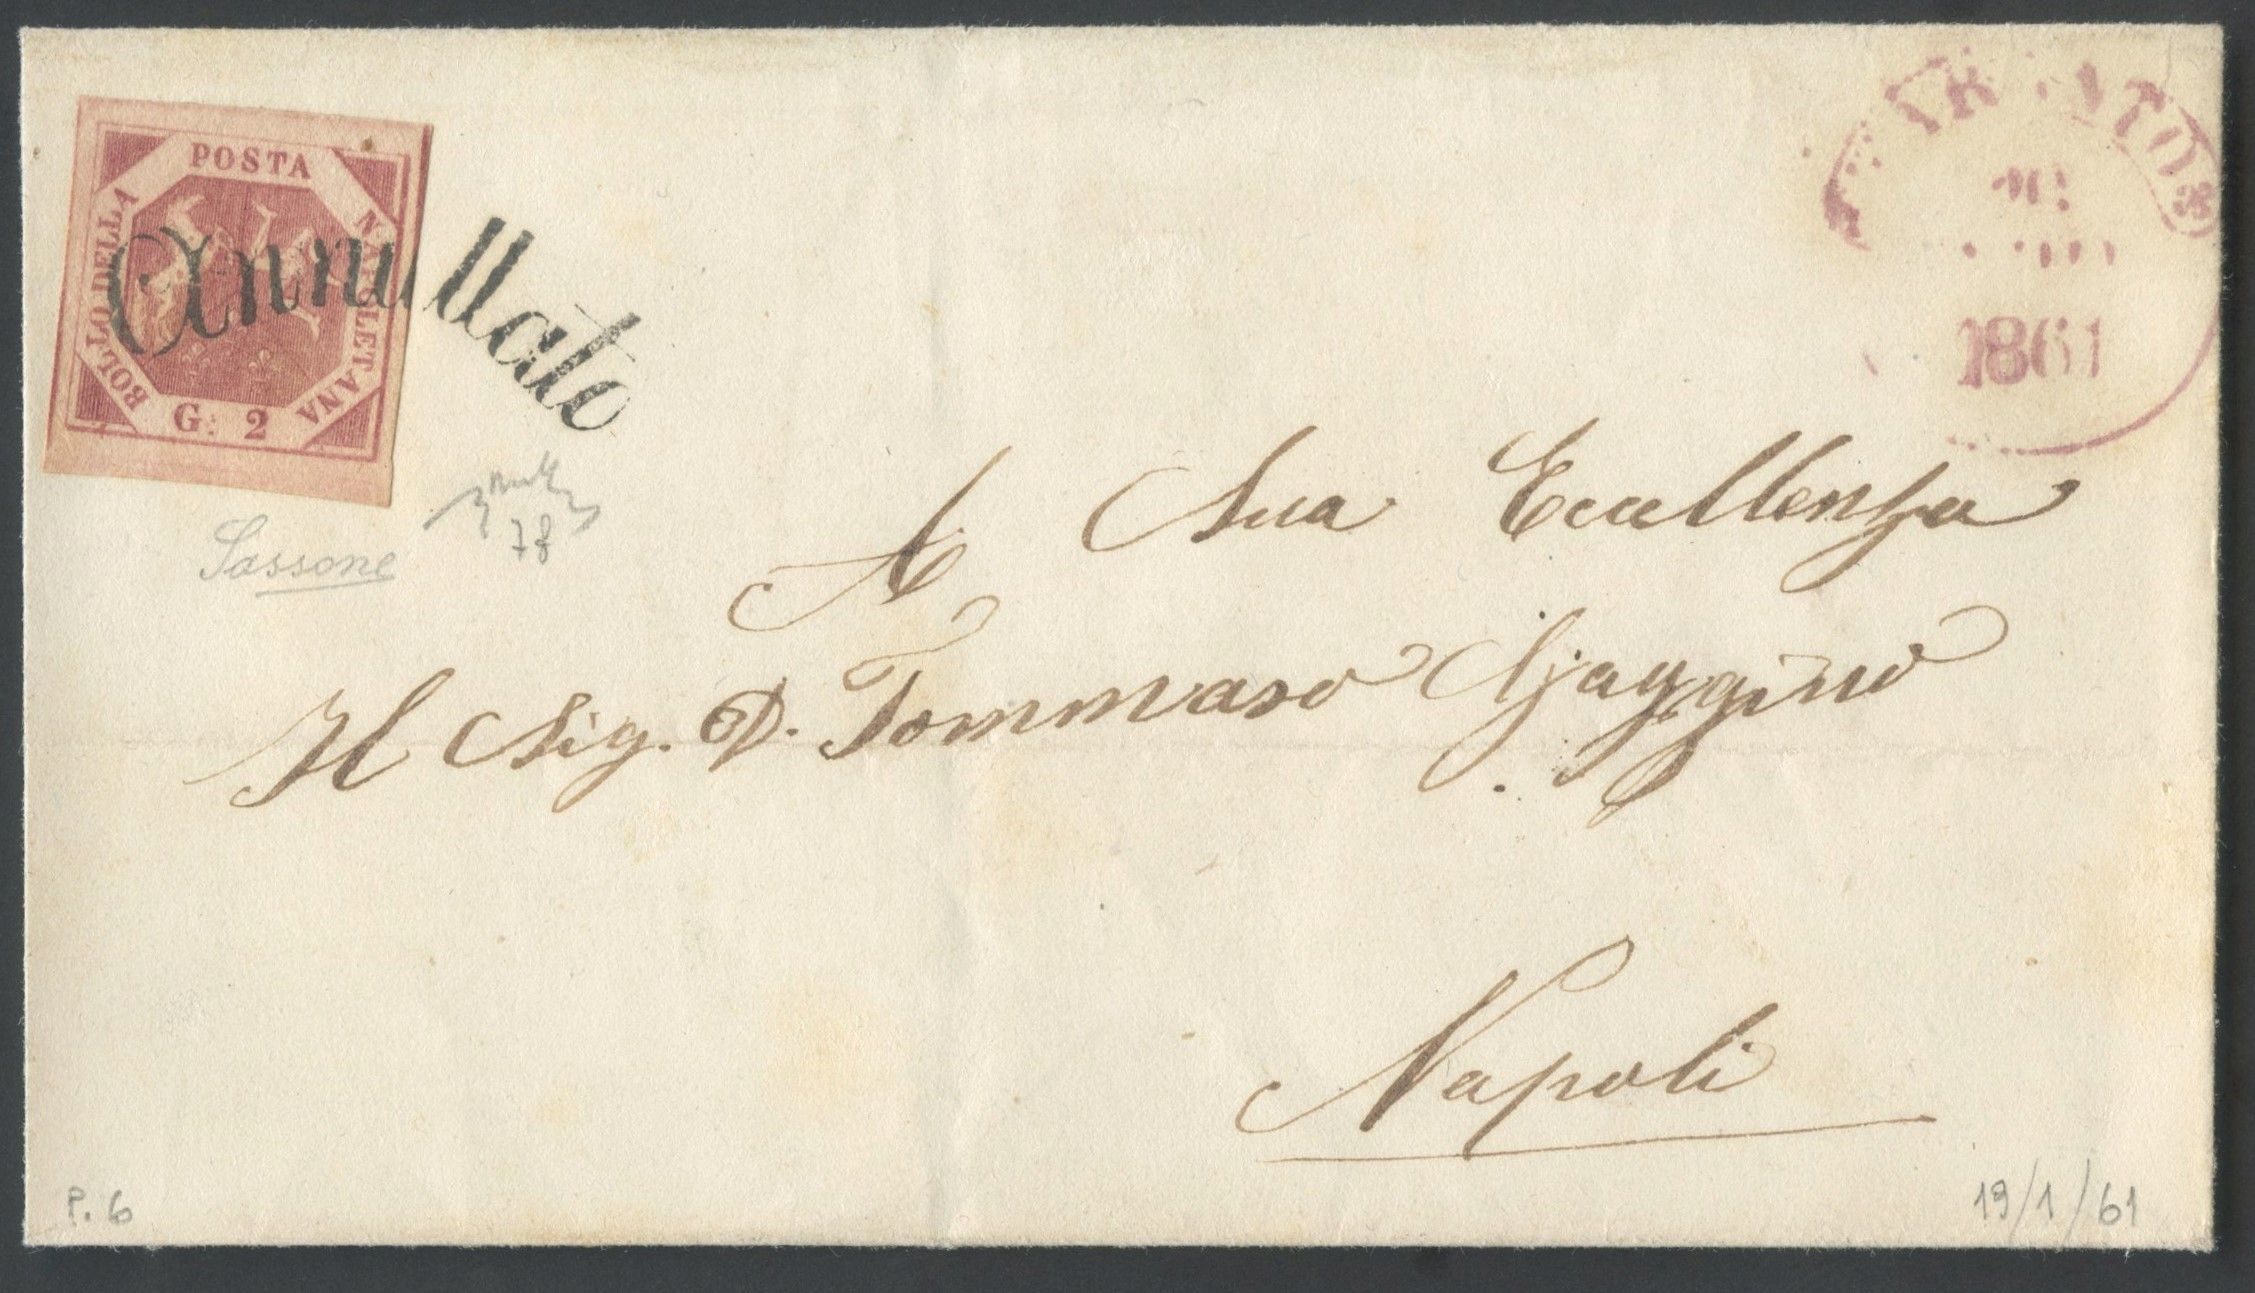 POSTA
NAPOLETANA
BOLLO DELLA
G. 2
Annullato
1861
Sassone
78
A Sua Eccellenza
Il Sig. D. Tommaso Gaggino
Napoli
P. 6
19/1/61